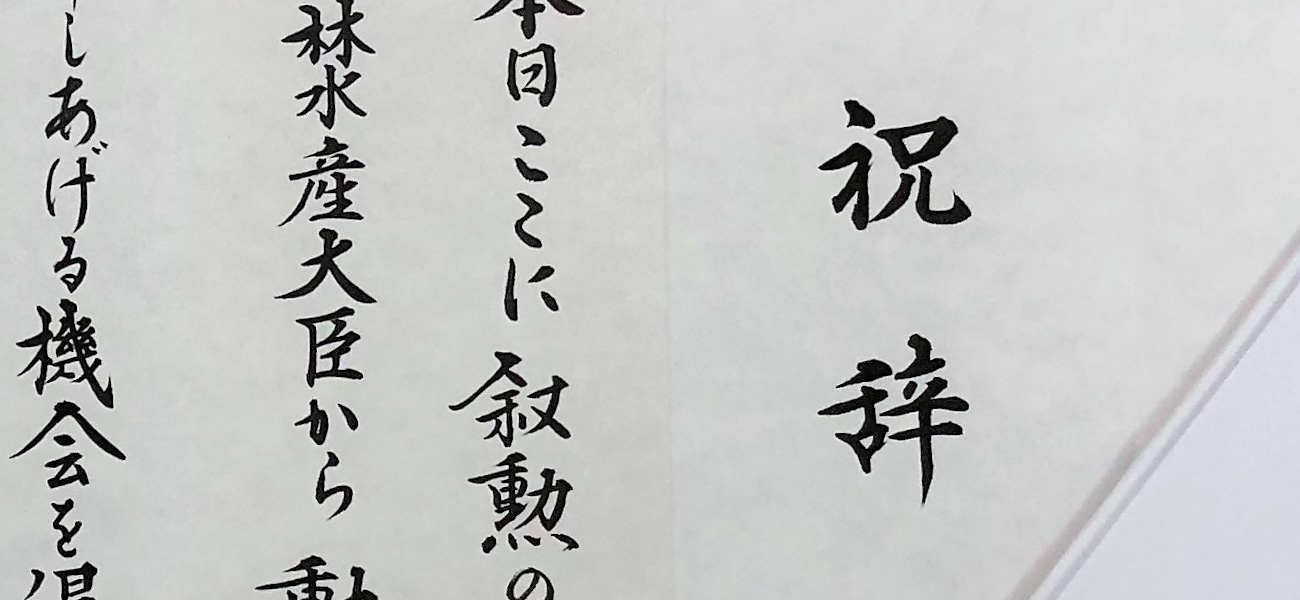 祝辞
本日ここに叙勲の
林水産大臣から勲
しあげる機会を得